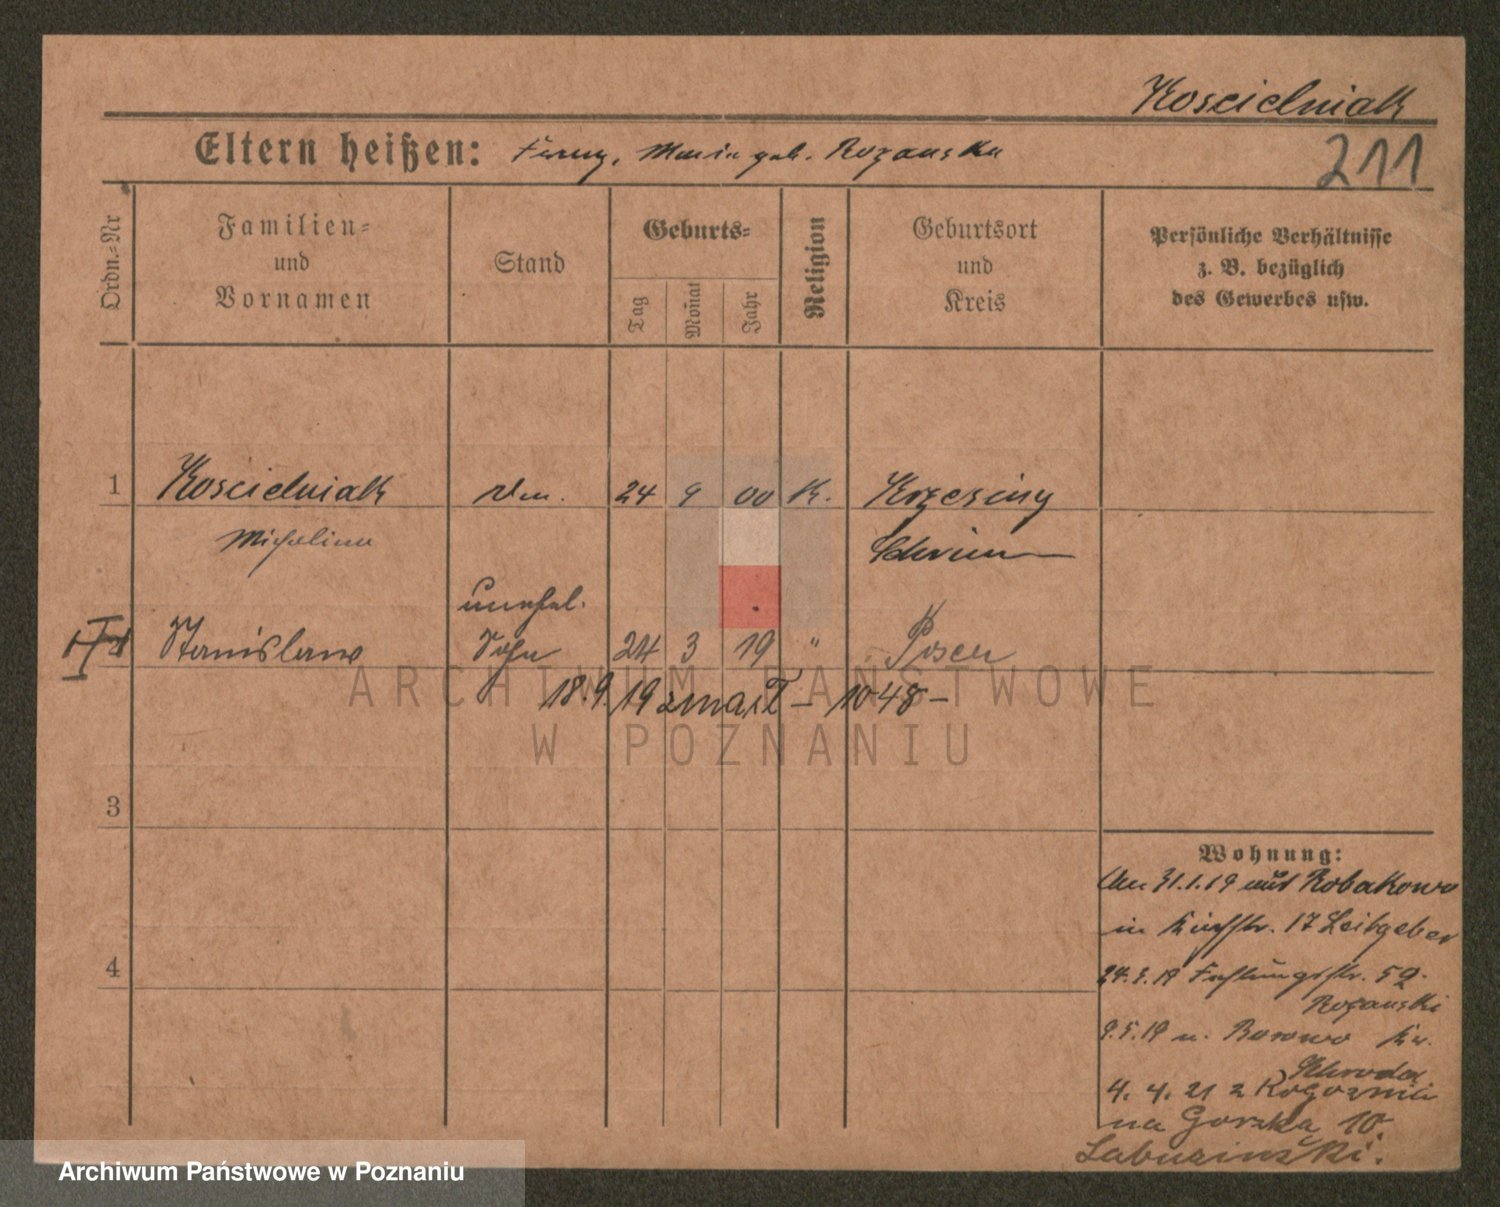 Koscielniak
Eltern heißen: Franz, Maria geb. Rozanska
211
Ordn.-Nr
Familien-
und
Vornamen
Stand
Geburts-
Tag
Monat
Jahr
Religion
Geburtsort
und
Kreis
Persönliche Verhältnisse
z. B. bezüglich
des Gewerbes usw.
1 Koscielniak 24 9 00 K. Krzesiny
Michalina Schrimm
unehel.
Stanislaus Sohn 24 3 19 " Posen
18.9.19 zmarł – 1048 –
3
4
Wohnung:
Am 31.1.19 aus Robakowo
in 17 Leitgeber
24.3.19 59.
Rozanski
9.5.19 n. Borowo Kr.
Schroda
4. 4. 21 z
na Gorzka 10
ARCHIWUM PAŃSTWOWE
W POZNANIU
Archiwum Państwowe w Poznaniu